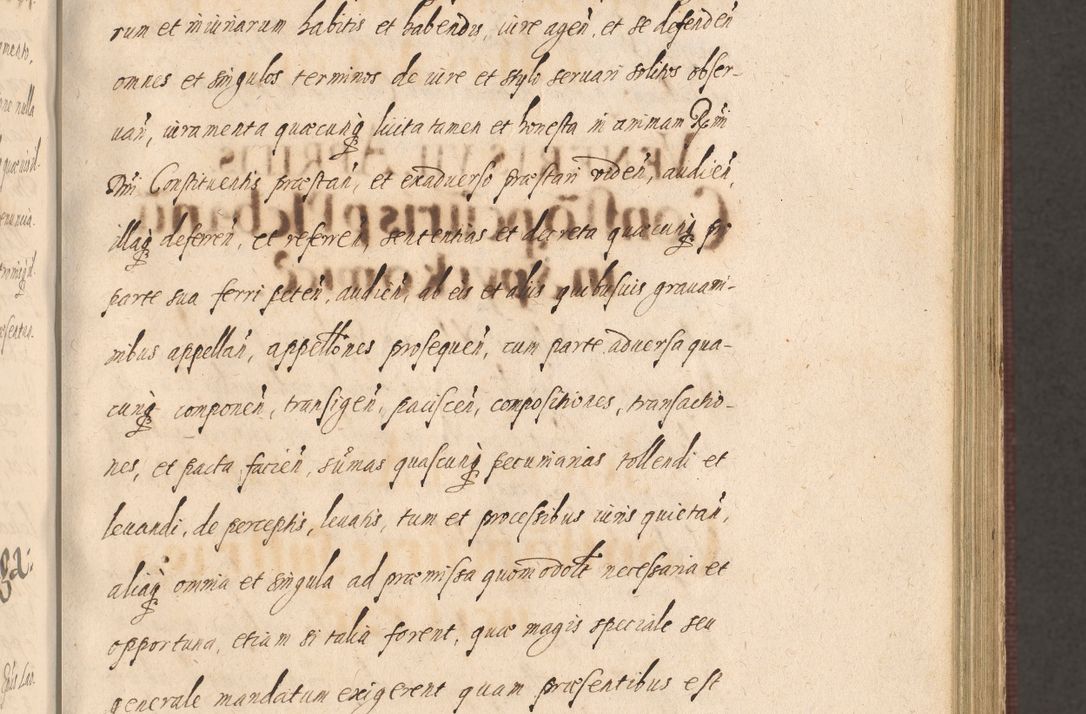 rum et iniuriarum habitis et habendis, iure agen̄, et se defenden̄
omnes et singulos terminos de iure et stylo seruari solitos obser-
uan̄, iuramenta quæcunq̃ licita tamen et honesta in animam Rm̄i
Dn̄i Constituentis præstan̄, et exaduerso præstari viden̄, audien̄,
illaq̃ deferren̄, et referren̄, sententias et decreta quæcunq̃ pro
parte sua ferri peten̄, audien̄, ab eis et aliis quibusuis grauami-
nibus appellan̄, appellōnes prosequen̄, cum parte aduersa qua-
cunq̃ componen̄, transigen̄, paciscen̄, compositiones, transactio-
nes, et pacta facien̄, sūmas quascunq̃ pecuniarias tollendi et
leuandi, de perceptis, leuatis, tum et processibus iuris quietan̄,
aliaq̃ omnia et singula ad præmissa quomodolt necessaria et
opportuna, etiam si talia forent, quæ magis speciale seu
generale mandatum exigerent quam præsentibus est